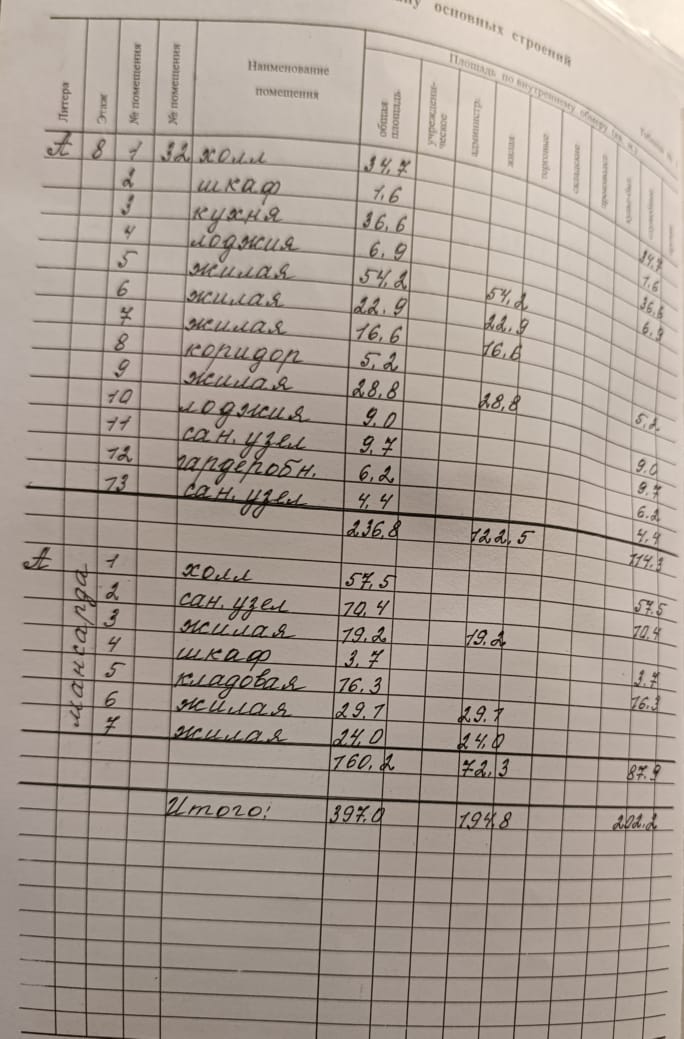 основных строений
Площадь по внутреннему обмеру (кв. м.)
Литера Этаж № помещения № помещения Наименование помещения общая площадь учрежденческое администр. жилая торговые складские
А 8 1 32 холл 34,7 34,7
2 шкаф 1,6 1,6
3 кухня 36,6 36,6
4 лоджия 6,9 6,9
5 жилая 54,2 54,2
6 жилая 22,9 22,9
7 жилая 16,6 16,6
8 коридор 5,2 5,2
9 жилая 28,8 28,8
10 лоджия 9,0 9,0
11 сан. узел 9,7 9,7
12 гардеробн. 6,2 6,2
13 сан. узел 4,4 4,4
236,8 122,5 114,3
А мансарда 1 холл 57,5 57,5
2 сан. узел 10,4 10,4
3 жилая 19,2 19,2
4 шкаф 3,7 3,7
5 кладовая 16,3 16,3
6 жилая 29,1 29,1
7 жилая 24,0 24,0
160,2 72,3 87,9
Итого: 397,0 194,8 202,2